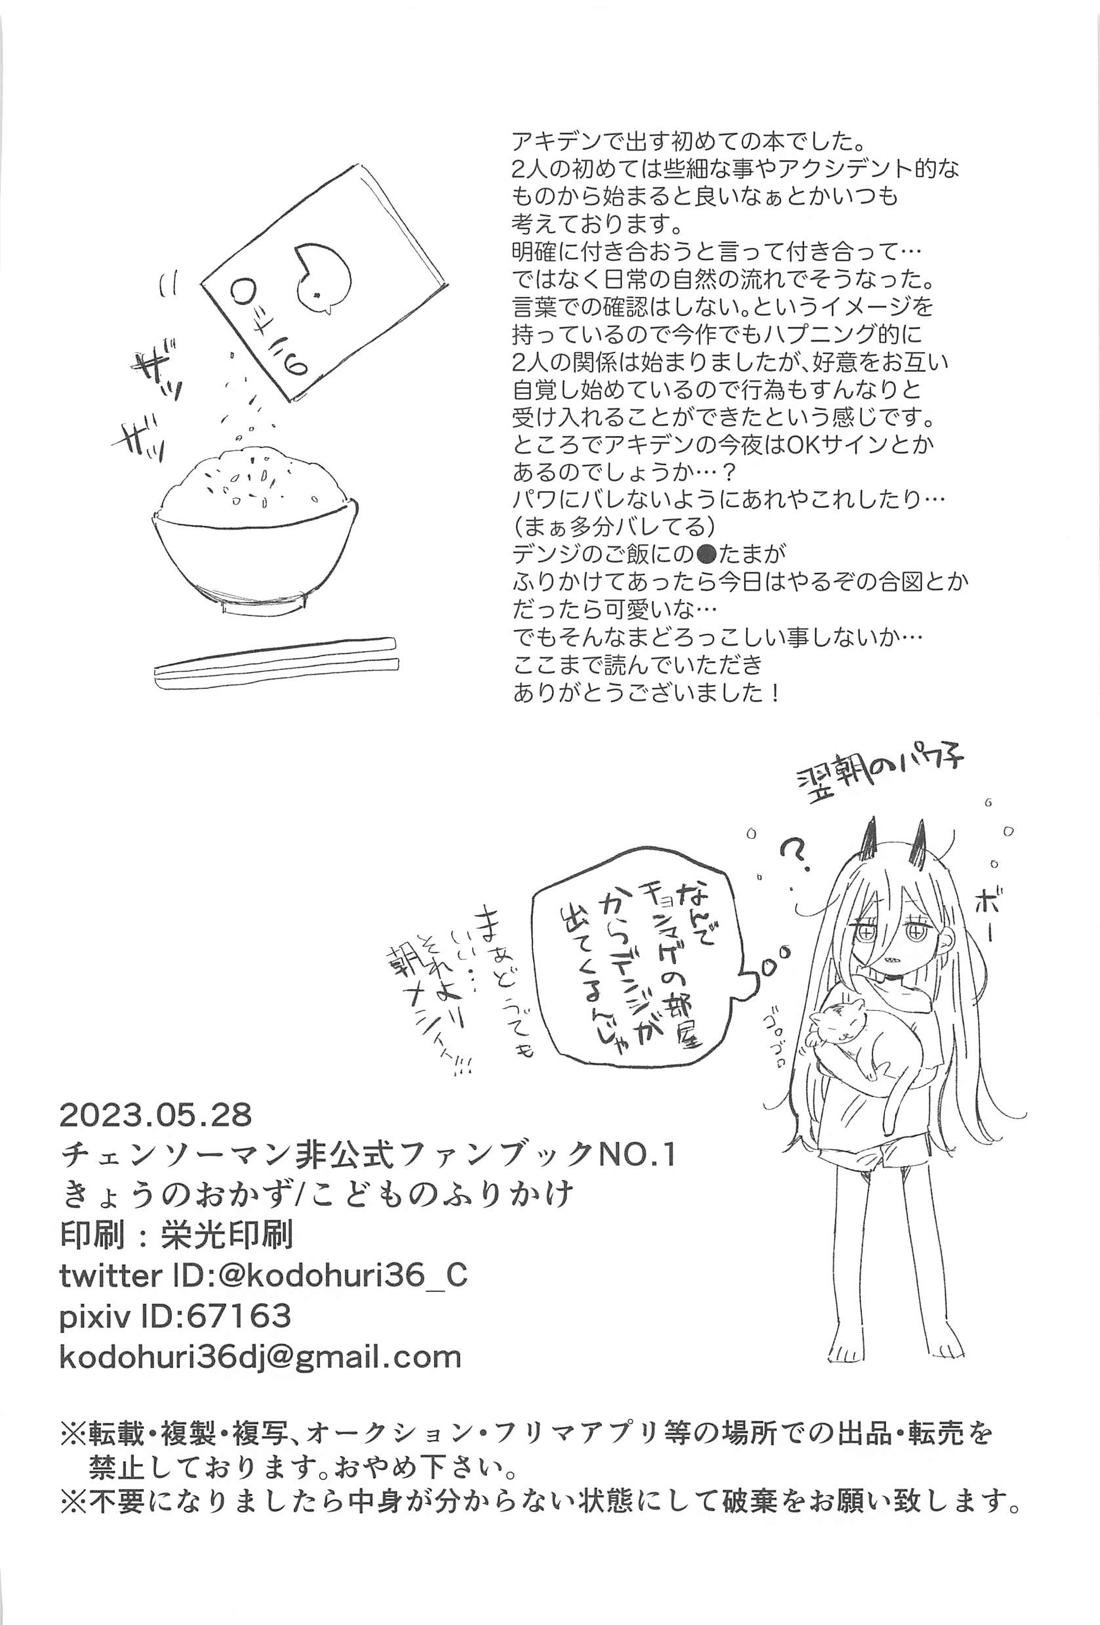 アキデンで出す初めての本でした。
2人の初めては些細な事やアクシデント的な
ものから始まると良いなぁとかいつも
考えております。
明確に付き合おうと言って付き合って…
ではなく日常の自然の流れでそうなった。
言葉での確認はしない。というイメージを
持っているので今作でもハプニング的に
2人の関係は始まりましたが、好意をお互い
自覚し始めているので行為もすんなりと
受け入れることができたという感じです。
ところでアキデンの今夜はOKサインとか
あるのでしょうか…？
パワにバレないようにあれやこれしたり…
（まぁ多分バレてる）
デンジのご飯にの●たまが
ふりかけてあったら今日はやるぞの合図とか
だったら可愛いな…
でもそんなまどろっこしい事しないか…
ここまで読んでいただき
ありがとうございました！
ザッ
ザッ
翌朝のパワ子
?
ボー
なんで
チョンマゲの部屋
からデンジが
出てくるんじゃ
ゴロゴロ
まぁどうでも
いい…
それより
朝メシィィ!!!
2023.05.28
チェンソーマン非公式ファンブックNO.1
きょうのおかず/こどものふりかけ
印刷：栄光印刷
twitter ID:@kodohuri36_C
pixiv ID:67163
kodohuri36dj@gmail.com
※転載・複製・複写、オークション・フリマアプリ等の場所での出品・転売を
禁止しております。おやめ下さい。
※不要になりましたら中身が分からない状態にして破棄をお願い致します。